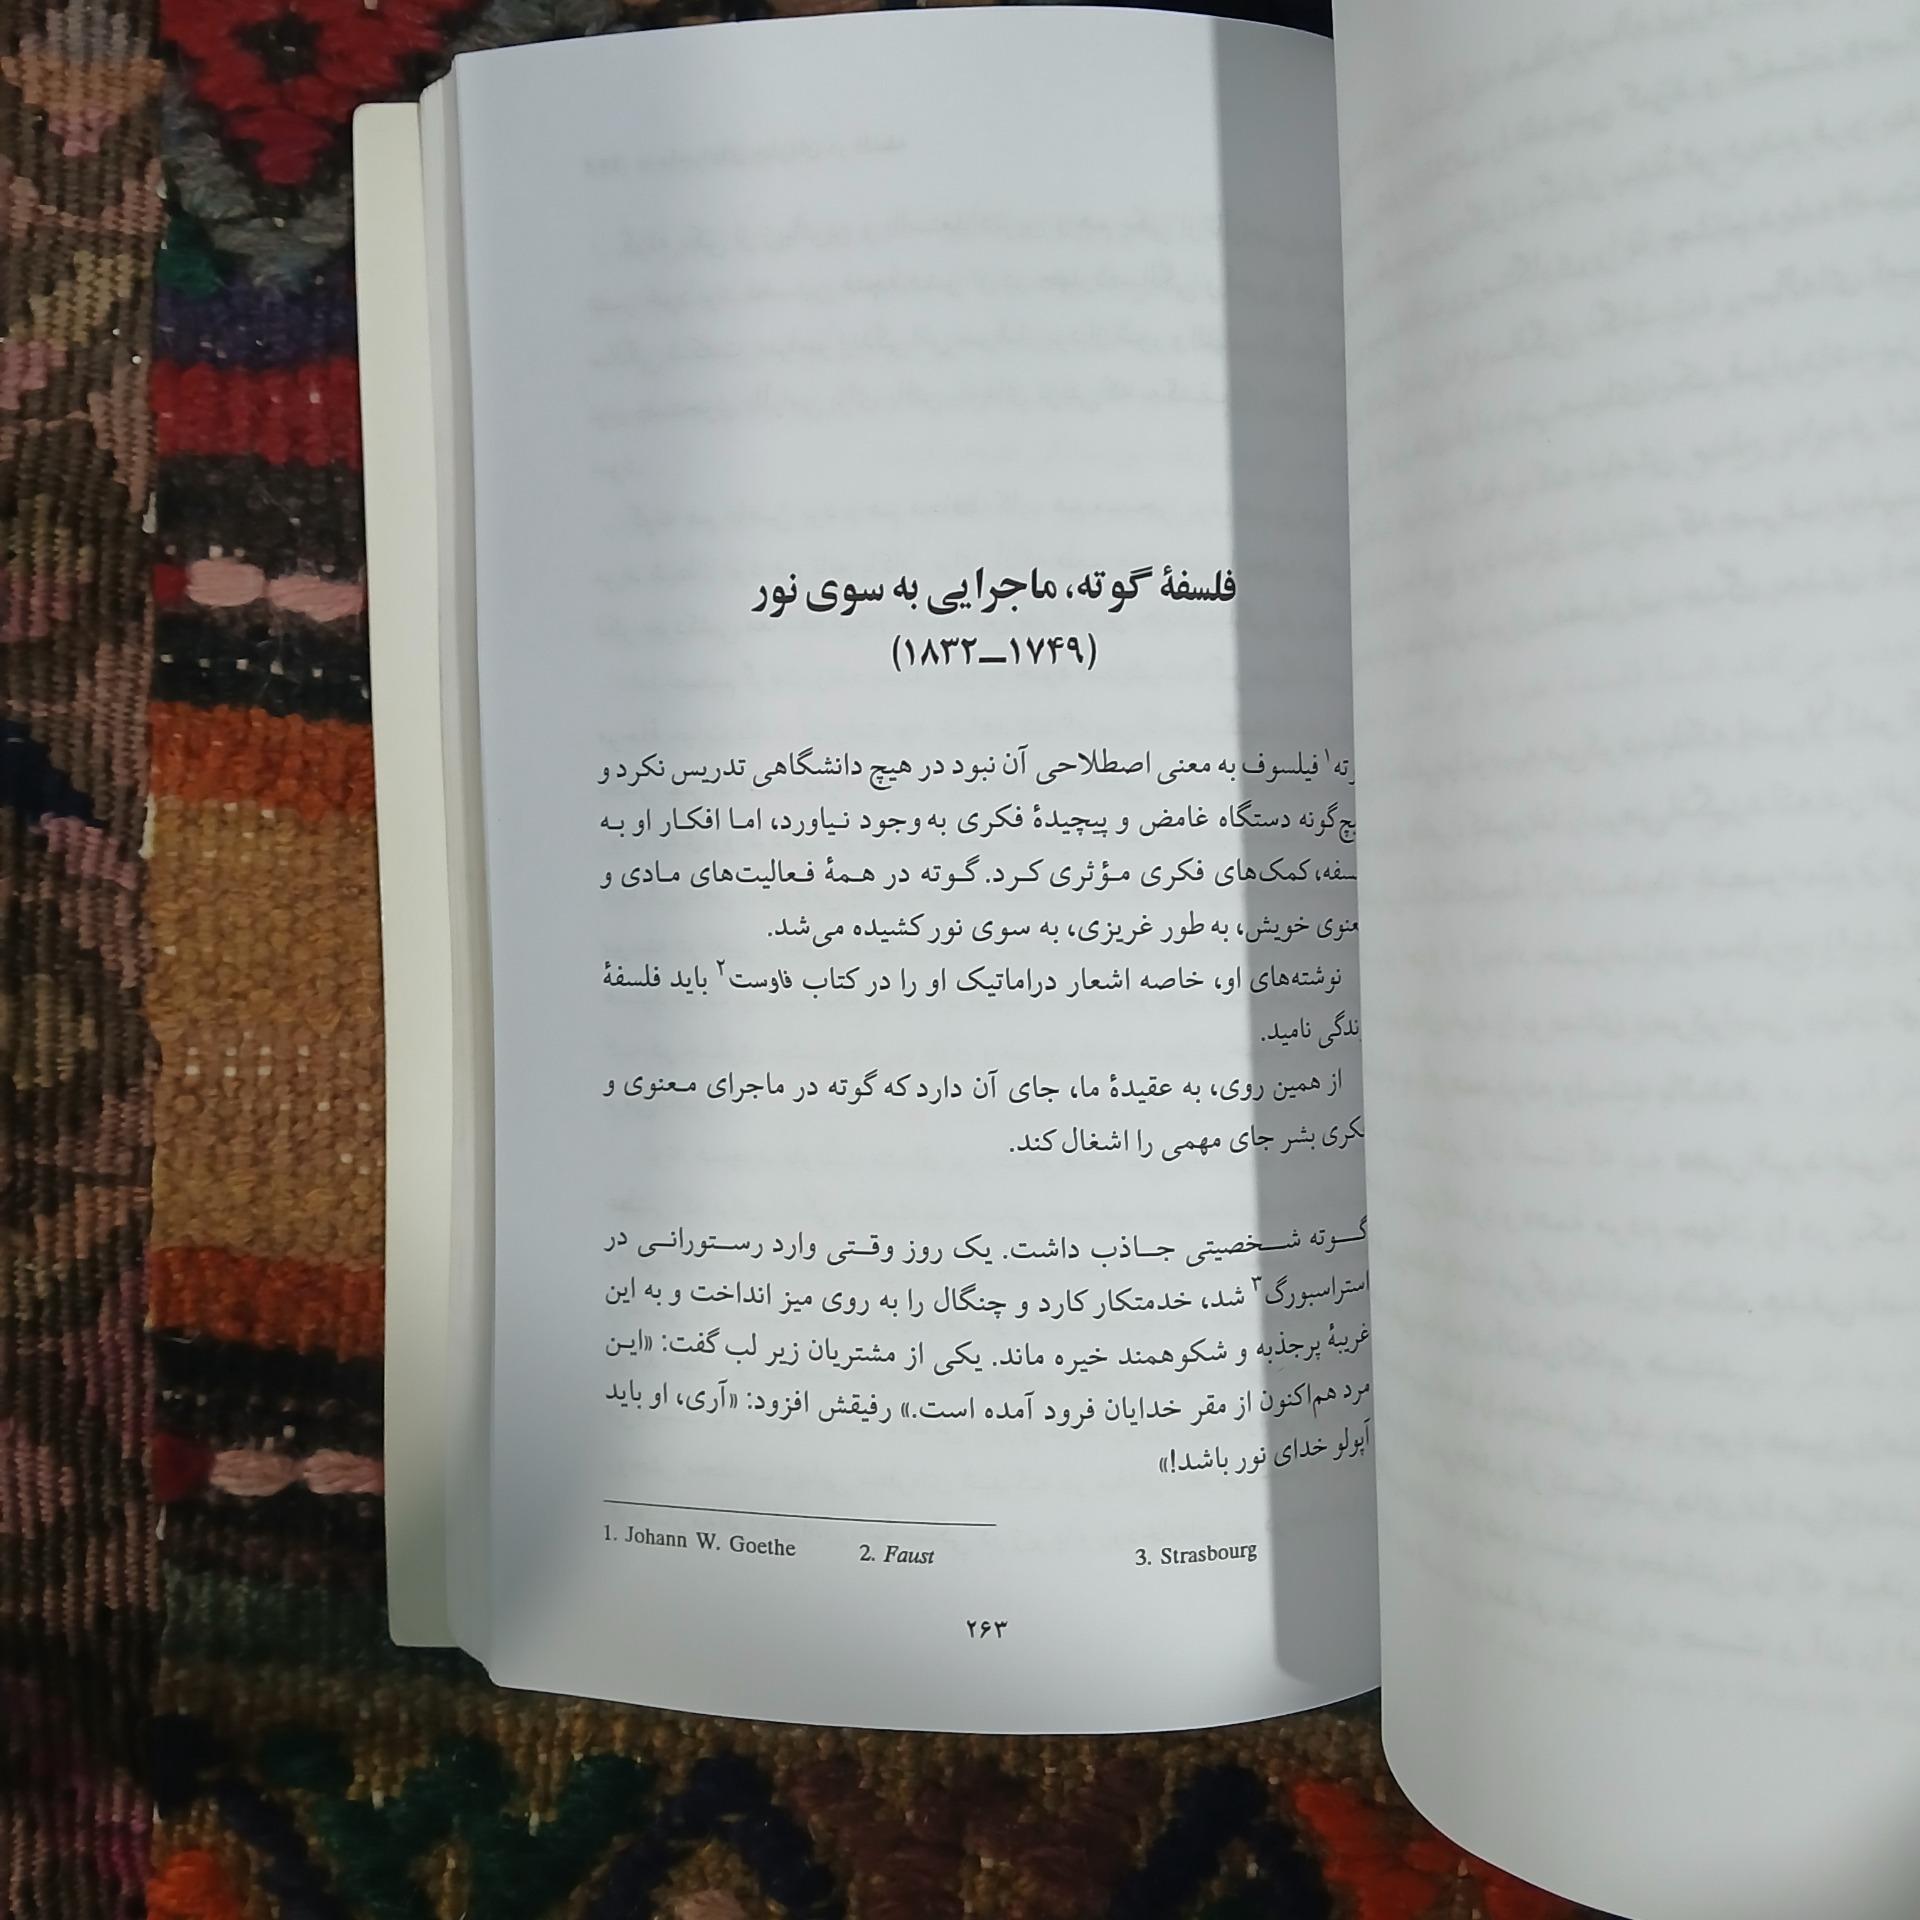 فلسفهٔ گوته، ماجرایی به سوی نور
(۱۷۴۹ــ۱۸۳۲)
فیلسوف به معنی اصطلاحی آن نبود در هیچ دانشگاهی تدریس نکرد و
دستگاه غامض و پیچیدهٔ فکری به وجود نیاورد، اما افکار او به
کمک‌های فکری مؤثری کرد. گوته در همهٔ فعالیت‌های مادی و
خویش، به طور غریزی، به سوی نور کشیده می‌شد.
نوشته‌های او، خاصه اشعار دراماتیک او را در کتاب فاوست۲ باید فلسفهٔ
نامید.
از همین روی، به عقیدهٔ ما، جای آن دارد که گوته در ماجرای معنوی و
بشر جای مهمی را اشغال کند.
گوته شخصیتی جاذب داشت. یک روز وقتی وارد رستورانی در
استراسبورگ۳ شد، خدمتکار کارد و چنگال را به روی میز انداخت و به این
غریبهٔ پرجذبه و شکوهمند خیره ماند. یکی از مشتریان زیر لب گفت: «این
مرد هم‌اکنون از مقر خدایان فرود آمده است.» رفیقش افزود: «آری، او باید
آپولو خدای نور باشد!»
1. Johann W. Goethe 2. Faust 3. Strasbourg
۲۶۳